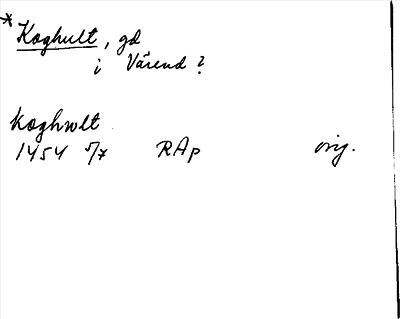 * Koghult, gd
i Värend?
Koghwlt
1454 5/7 RAp orig.